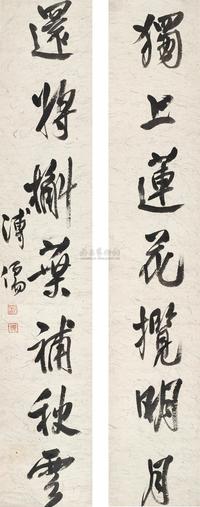 獨上蓮花攬明月
還將槲葉補秋雲
溥儒